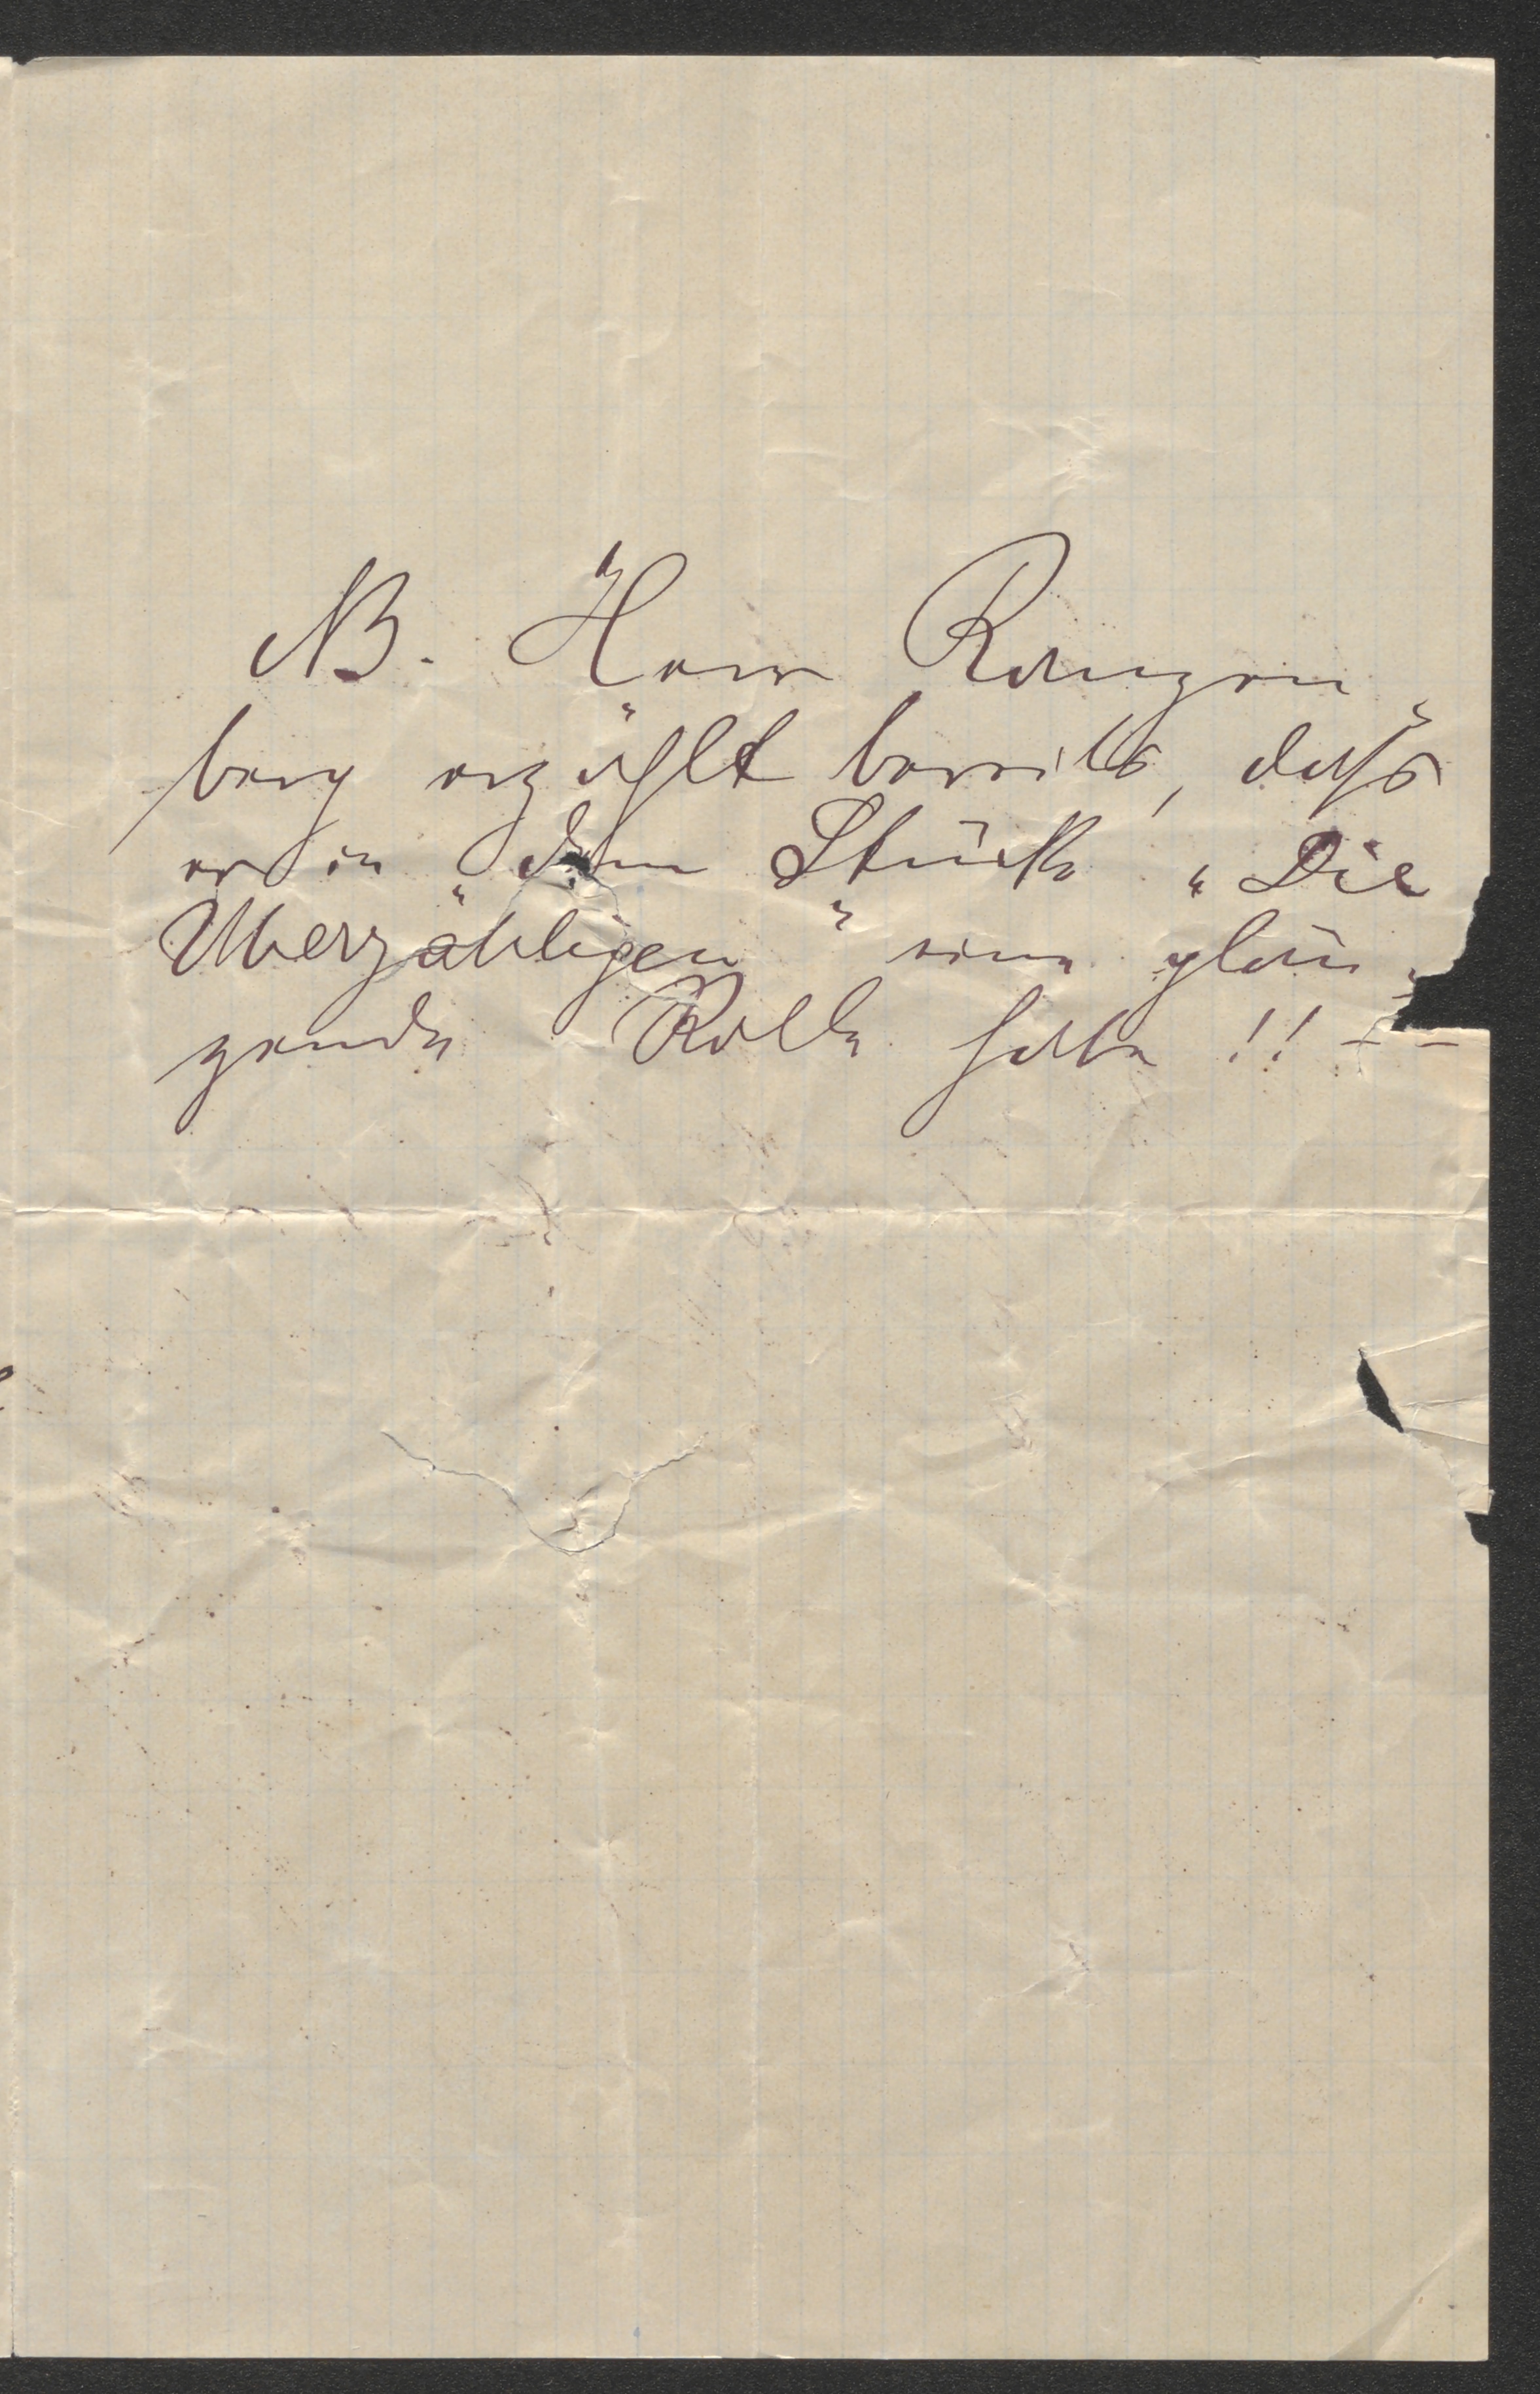 NB. Herr Ranzen-
berg erzählt bereits, dass
er in dem Stücke „Die
Überzähligen" eine glän-
zende Rolle habe!! — —